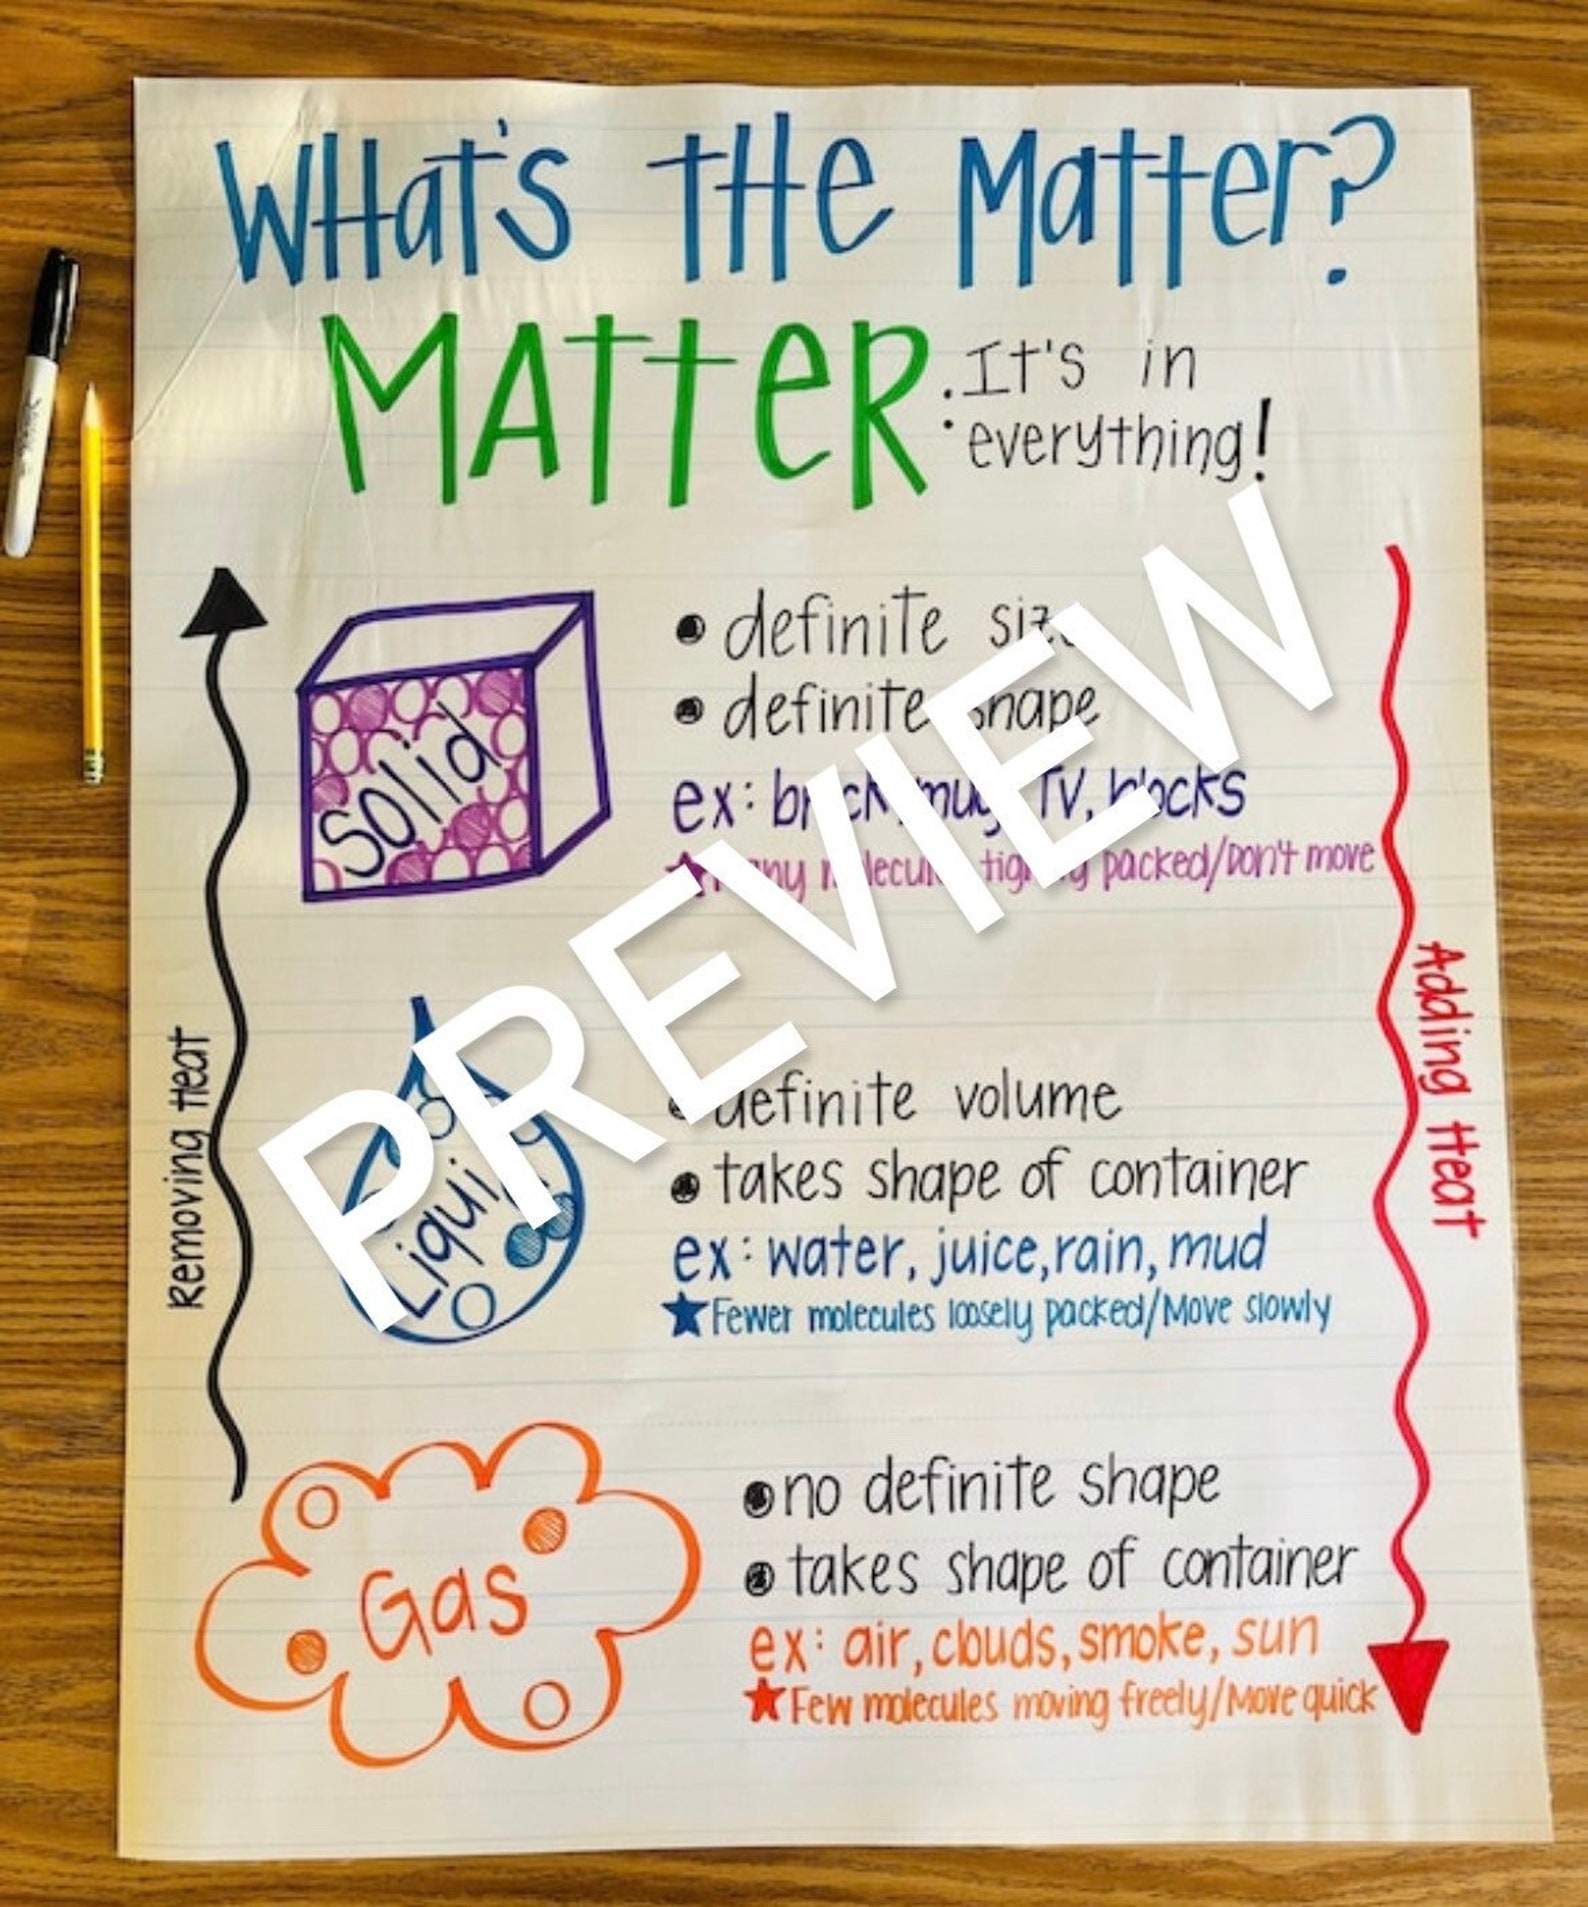 WHat's tHe Matter?
MATTeR : It's in
everything!
• definite size
• definite shape
Solid
ex: brick, mug, TV, blocks
★ Many molecules tightly packed/Don't move
Removing Heat
Adding Heat
PREVIEW
• definite volume
• takes shape of container
Liquid
ex: water, juice, rain, mud
★ Fewer molecules loosely packed/Move slowly
• no definite shape
• takes shape of container
Gas
ex: air, clouds, smoke, sun
★ Few molecules moving freely/Move quick